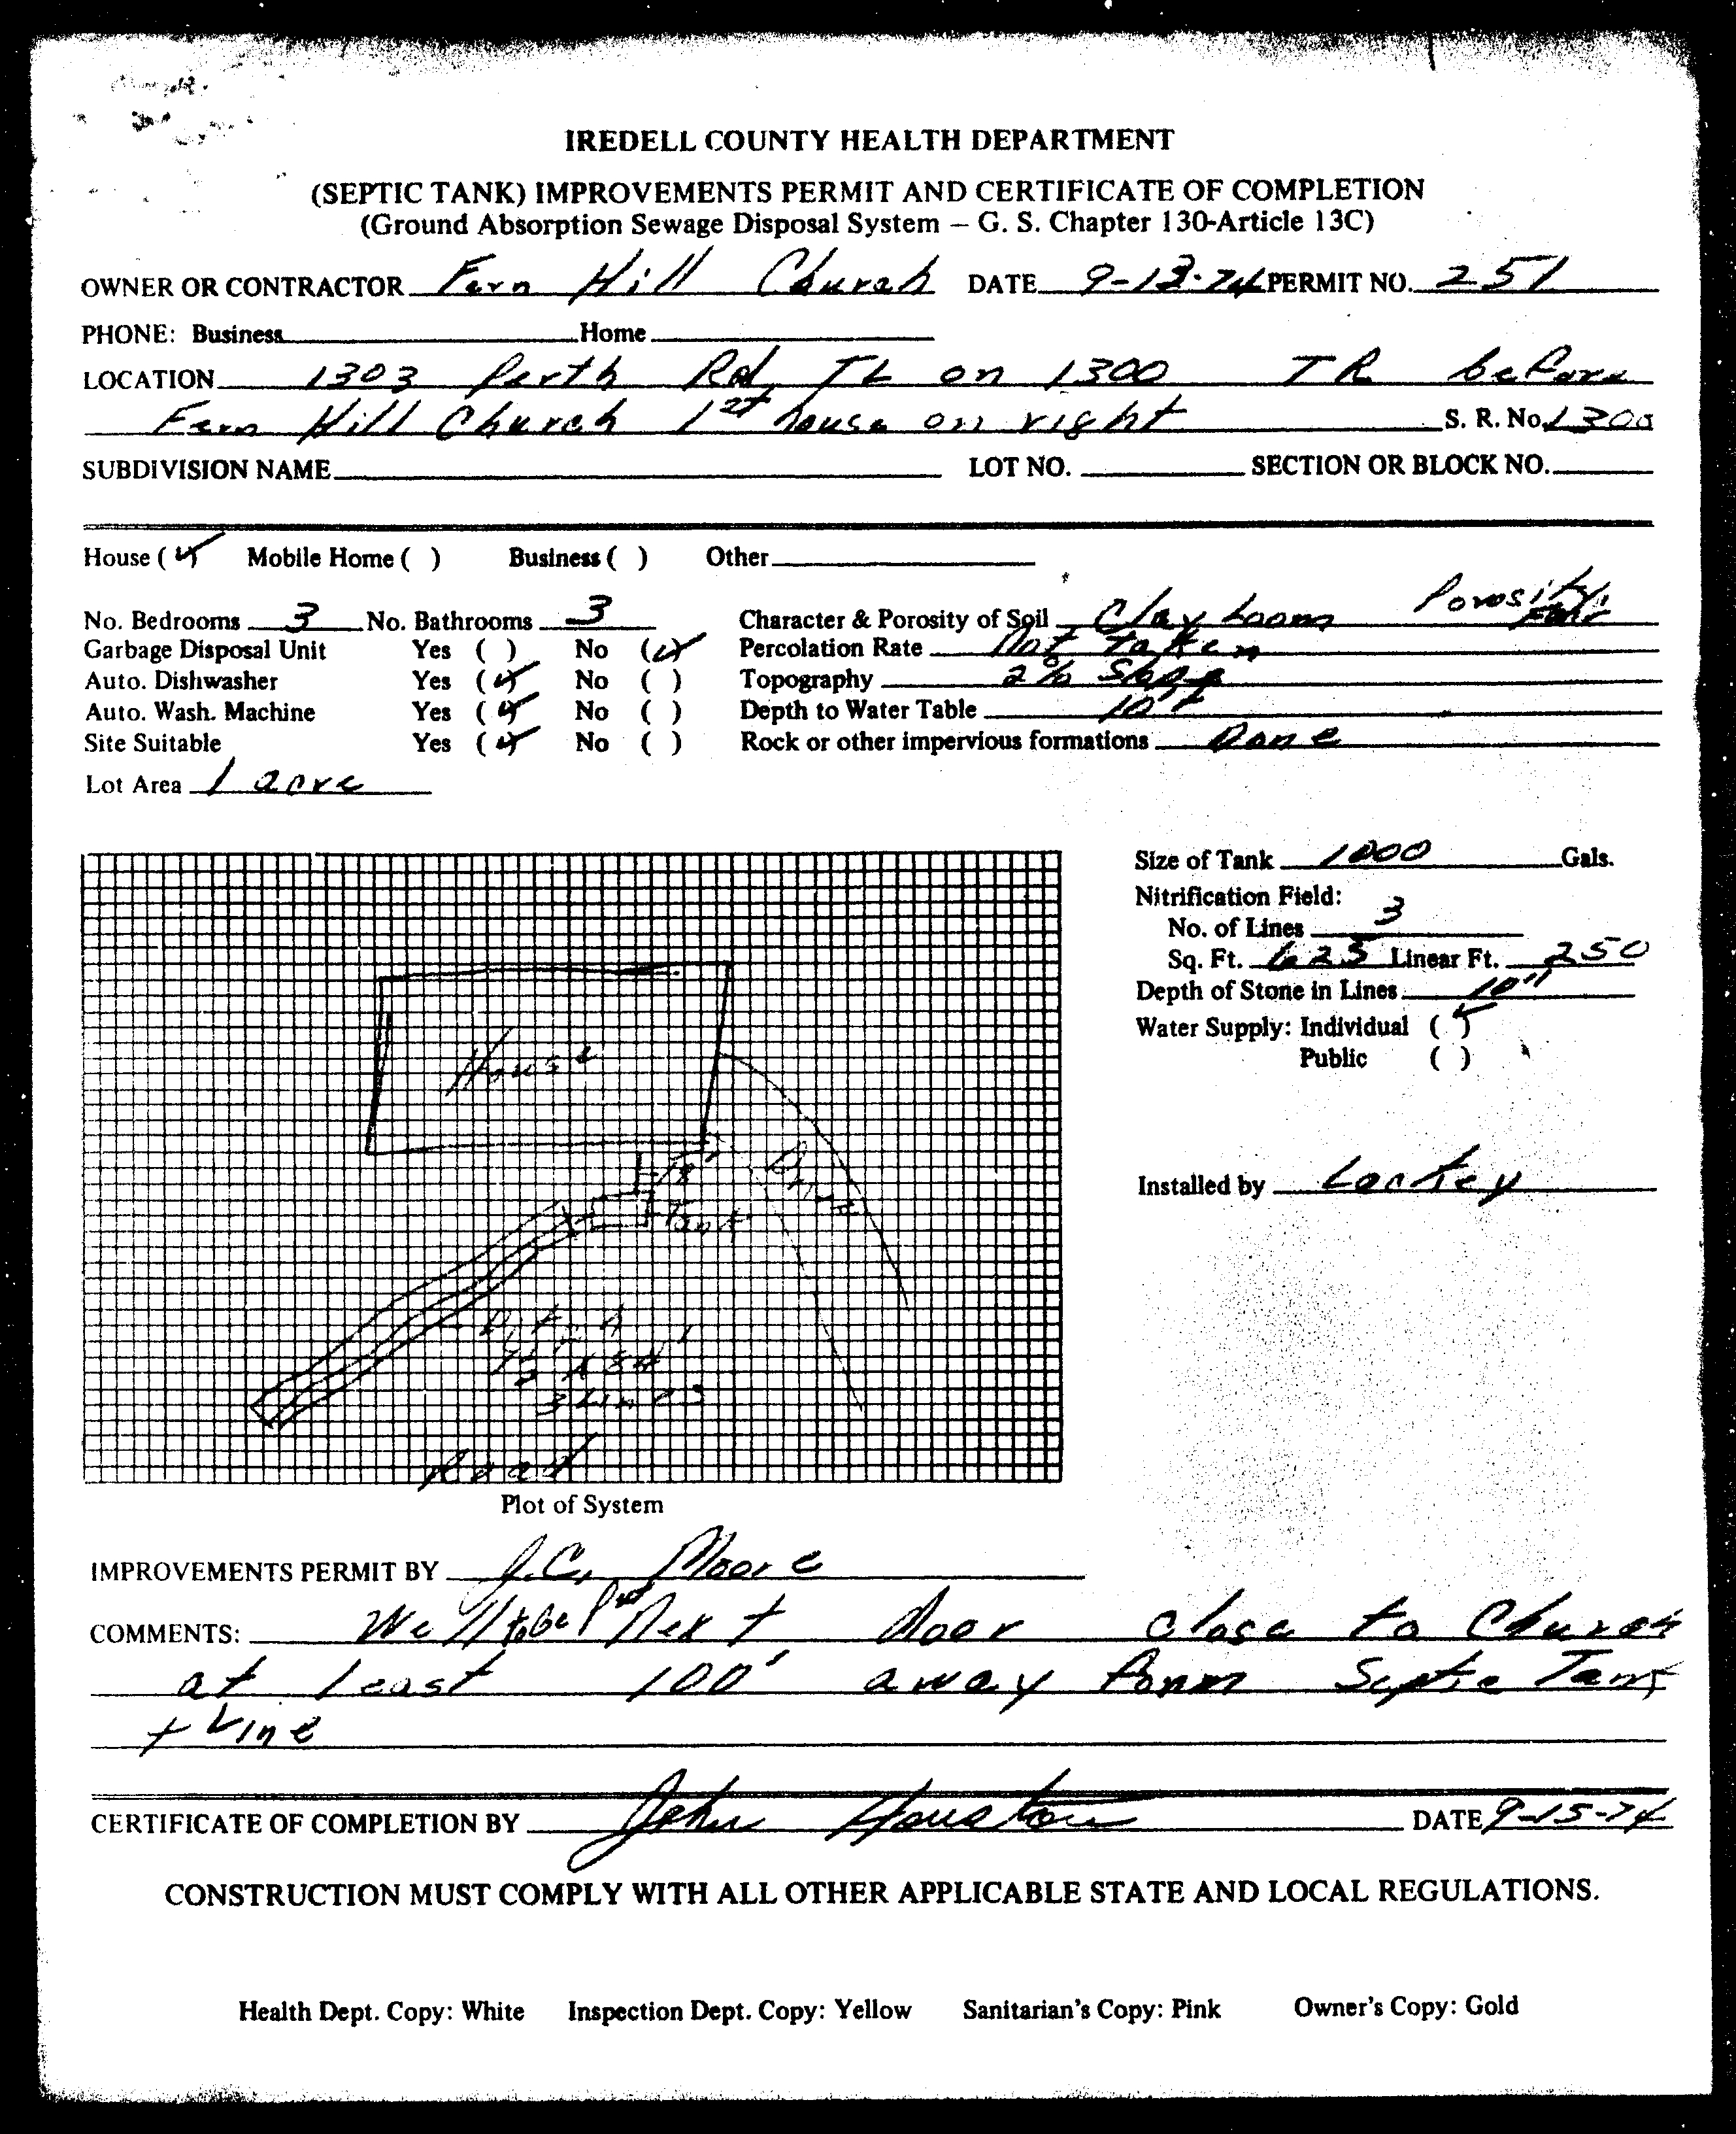 IREDELL COUNTY HEALTH DEPARTMENT
(SEPTIC TANK) IMPROVEMENTS PERMIT AND CERTIFICATE OF COMPLETION
(Ground Absorption Sewage Disposal System – G. S. Chapter 130-Article 13C)
OWNER OR CONTRACTOR Fern Hill Church DATE 9-13-74 PERMIT NO. 251
PHONE: Business Home
LOCATION 1303 Perth Rd, TL on 1300 TR before
Fern Hill Church 1st house on right S. R. No. 1300
SUBDIVISION NAME LOT NO. SECTION OR BLOCK NO.
House (✓) Mobile Home ( ) Business ( ) Other
No. Bedrooms 3 No. Bathrooms 3 Character & Porosity of Soil Clay Loam Porosity Fair
Garbage Disposal Unit Yes ( ) No (✓) Percolation Rate Not Taken
Auto. Dishwasher Yes (✓) No ( ) Topography 2% Slope
Auto. Wash. Machine Yes (✓) No ( ) Depth to Water Table 10'+
Site Suitable Yes (✓) No ( ) Rock or other impervious formations None
Lot Area 1 acre
Size of Tank 1000 Gals.
Nitrification Field:
No. of Lines 3
Sq. Ft. 625 Linear Ft. 250
Depth of Stone in Lines 10"
Water Supply: Individual (✓)
Public ( )
House
Drive
Tank
3 Lines
Road
Installed by Lackey
Plot of System
IMPROVEMENTS PERMIT BY J.C. Moore
COMMENTS: Well to be Put Next door close to Church
at least 100' away from Septic Tank
+ Line
CERTIFICATE OF COMPLETION BY John Houston DATE 9-15-74
CONSTRUCTION MUST COMPLY WITH ALL OTHER APPLICABLE STATE AND LOCAL REGULATIONS.
Health Dept. Copy: White Inspection Dept. Copy: Yellow Sanitarian's Copy: Pink Owner's Copy: Gold